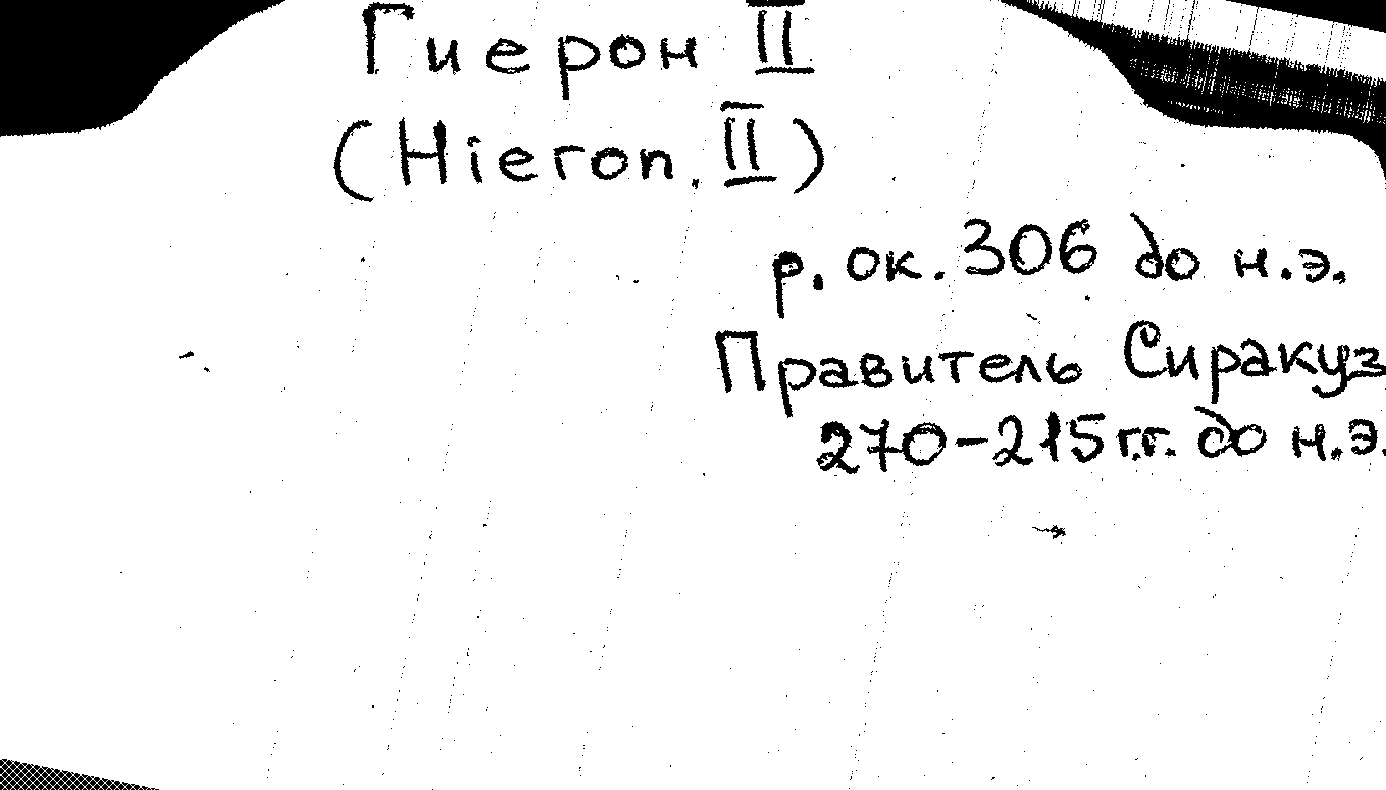 Гиерон II
(Hieron. II)
р. ок. 306 до н.э.
Правитель Сиракуз
270-215 гг. до н.э.